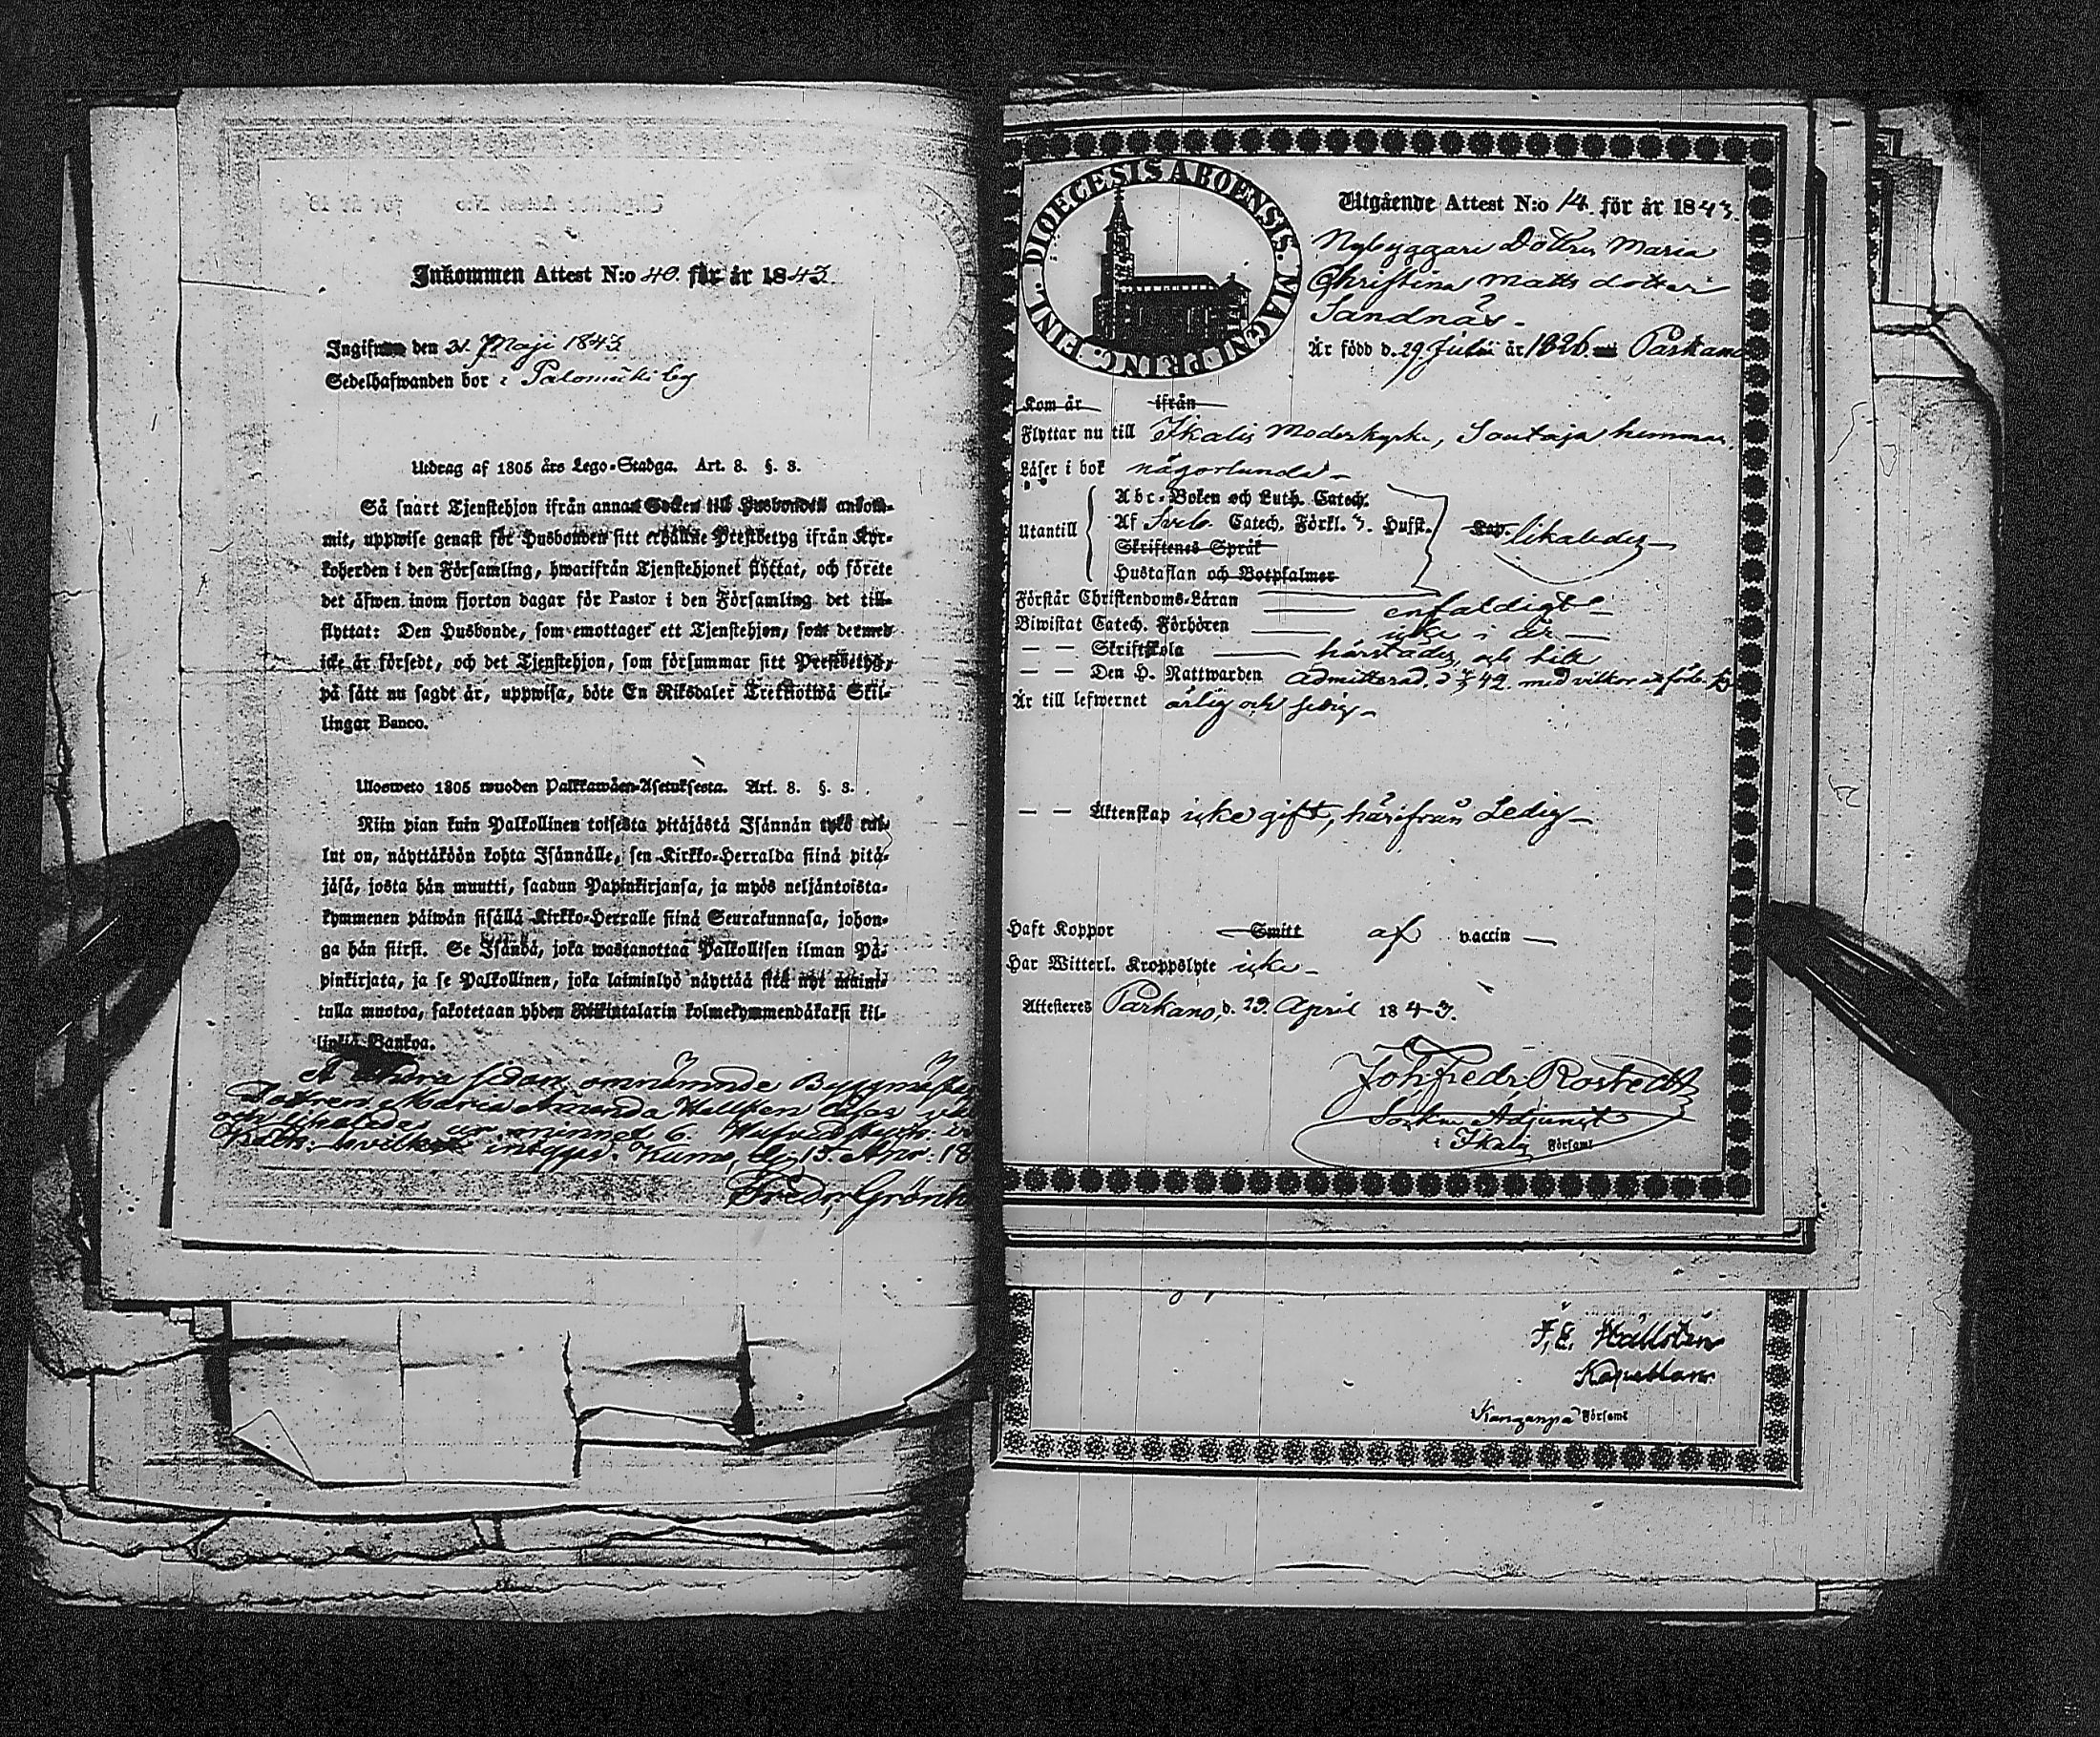 Inkommen Attest N:o 40. för år 1843.
Ingifwen den 31. Maji 1843
Sedelhafwanden bor i Palomäki by
Utdrag af 1805 års Lego-Stadga. Art. 8. §. 8.
Så snart Tjenstehjon ifrån annan Socken till Husbonden ankom-
mit, uppwise genast för Husbonden sitt erhållne Prestbetyg ifrån Kyr-
koherden i den Församling, hwarifrån Tjenstehjonet flyttat, och förete
det äfwen inom fjorton dagar för Pastor i den Församling det till-
flyttat: Den Husbonde, som emottager ett Tjenstehjon, som dermed
icke är försedt, och det Tjenstehjon, som försummar sitt Prestbetyg,
på sätt nu sagdt är, uppwisa, böte En Riksdaler Trettiotwå Skil-
lingar Banco.
Ulosweto 1805 wuoden Palkkawäen-Asetuksesta. Art. 8. §. 8.
Niin pian kuin Palkollinen toisesta pitäjästä Isännän tykö tul-
lut on, näyttäköön kohta Isännälle, sen Kirkko-Herralda siinä pitä-
jäsä, josta hän muutti, saadun Papinkirjansa, ja myös neljäntoista-
kymmenen päiwän sisällä Kirkko-Herralle siinä Seurakunnasa, johon-
ga hän siirsi. Se Isändä, joka wastanottaa Palkollisen ilman Pa-
pinkirjata, ja se Palkollinen, joka laiminlyö näyttää sitä nyt maini-
tulla muotoa, sakotetaan yhden Riikintalarin kolmekymmendäkaksi kil-
linkiä Bankoa.
Dottren Maria Amanda Hellsten läser
och likaledes ur minnet 6.
hvilket intygas. Kumo, d. 15. Apr. 18
Fredr. Grönh
DIOECESIS ABOENSIS. MAGNI PRINC. FINL.
Utgående Attest N:o 14. för år 1843.
Nybyggare Dottren Maria
Christina Mattsdotter
Sandnäs.
Är född d. 29 Julii år 1826 Parkano
Kom år ifrån
Flyttar nu till Ikalis Moderkyrka, Sontaja hemman
Läser i bok någorlunda
Utantill
Abc-Boken och Luth. Catech.
Af Sveb. Catech. Förkl. 3. Hufst. Cap. likaledes
Skriftenes Språk
Hustaflan och Botpsalmer
Förstår Christendoms-Läran enfaldigt
Biwistat Catech. Förhören icke i år
— — Skriftskola härstädes och till
— — Den H. Nattwarden admitterad
Är till lefwernet ärlig och sedig
— — Äktenskap icke gift, härifrån Ledig
Haft Koppor Smitt af vaccin
Har Witterl. Kroppslyte icke
Attesteres Parkano, d. 23. April 1843.
Joh Fredr Rostedt
Sockne Adjunct
i Ikalis Församl
F. E. Hällstén
Kapellan
i Kanganpä Församl